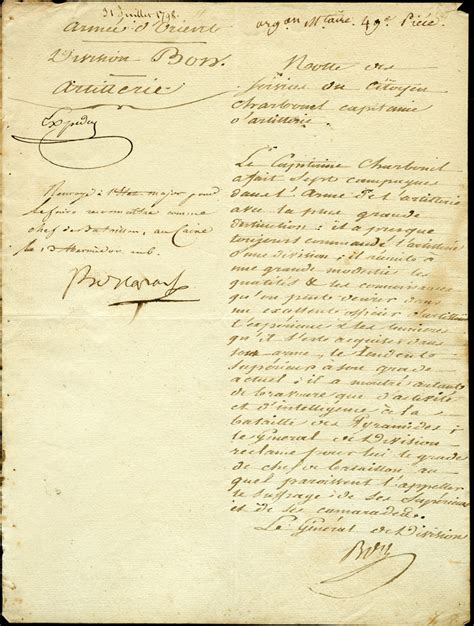 31 Juillet 1798.
organ Mtaire. 49e Pièce.
Armée d'Orient
Division Bon.
Artillerie
Notte des
services du Citoyen
Charbonel capitaine
d'artillerie.
Le Capitaine Charbonel
a fait Sept campagnes
dans l'Arme de l'artillerie
avec la plus grande
distinction; il a presque
toujours commandé l'artillerie
d'une division; il réunit à
une grande modestie les
qualités & les connaissances
qu'on peut désirer dans
un excellent officier d'artillerie
l'expérience & les lumières
qu'il s'est acquises dans
son arme, le rendent
Supérieur à son grade
actuel; il a montré autant
de bravoure que d'activité
et d'intelligence à la
bataille des Pyramides;
le Général de Division
réclame pour lui le grade
de chef de bataillon au
quel paroissent l'appeller
le suffrage de ses Supérieurs
et de ses camarades.
Le Général de Division
Bon
Renvoyé à l'état major pour
le faire reconnaître comme
chef de bataillon, au Caire
le 13 thermidor